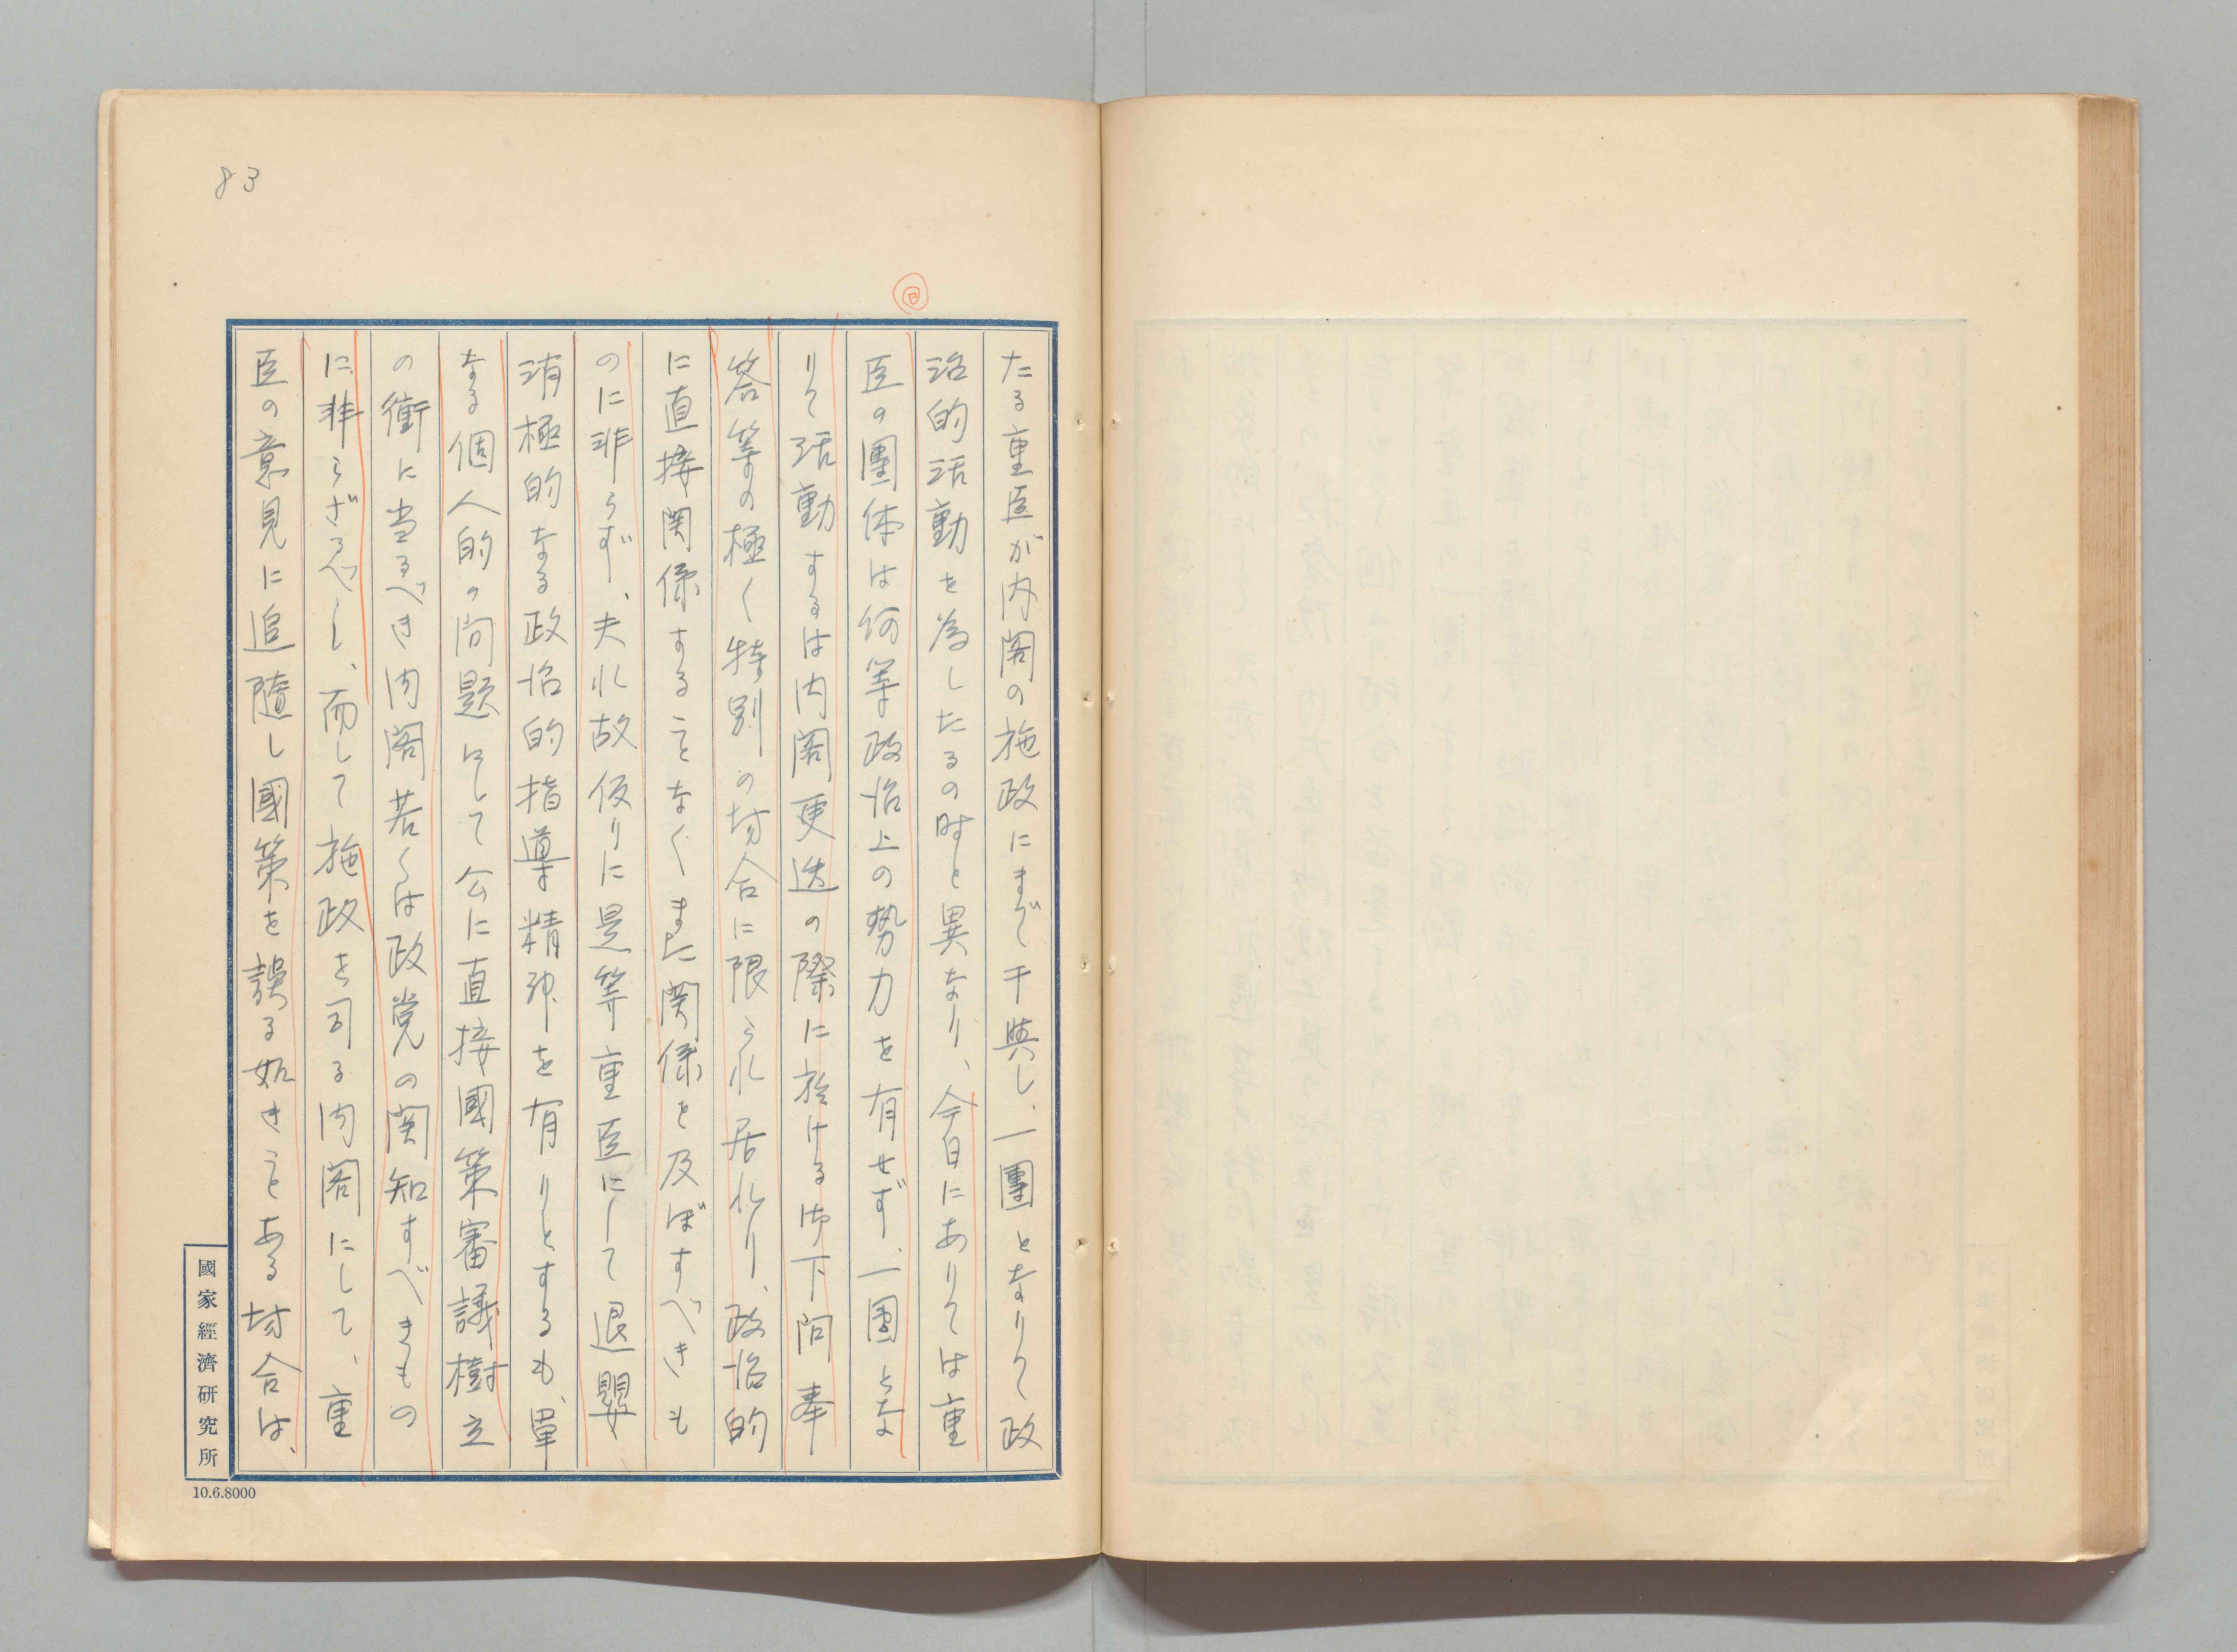 83
たる重臣が内閣の施政にまで干與し、一團となりて政
治的活動を為したるの時と異なり、今日にありては重
臣の團体は何等政治上の勢力を有せず、一團とな
りて活動するは内閣更迭の際に於ける御下問奉
答等の極く特別の場合に限られ居れり、政治的
に直接関係することなくまた関係を及ぼすべきも
のに非らず、夫れ故仮りに是等重臣にして退嬰
消極的なる政治的指導精神を有りとするも、單
なる個人的の問題にして公に直接國策審議樹立
の衝に当るべき内閣若くは政党の関知すべきもの
に非らざるべし、而して施政を司る内閣にして、重
臣の意見に追隨し國策を誤る如きことある場合は、
國家經濟研究所
10.6.8000